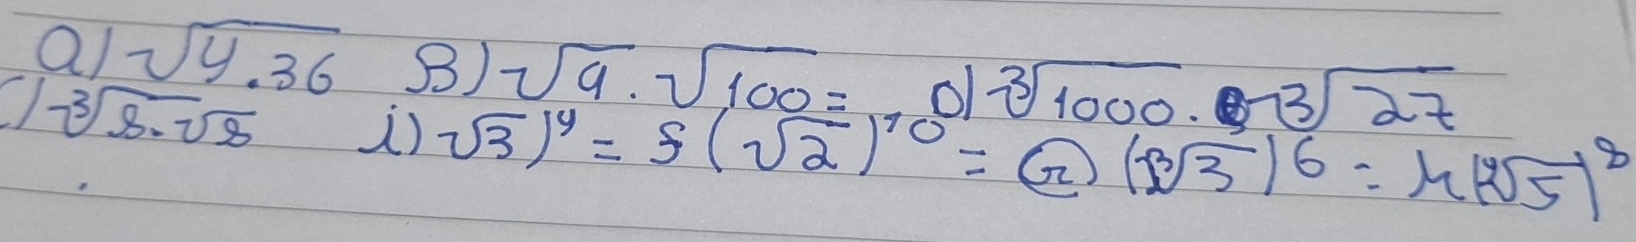 a) √4.36 B) √9 . √100 = D) ³√1000 . ³√27
C) ³√8.√8 i) √3)⁴ = f (√2)¹⁰ = G) (³√3)6 = h(²√5)⁸